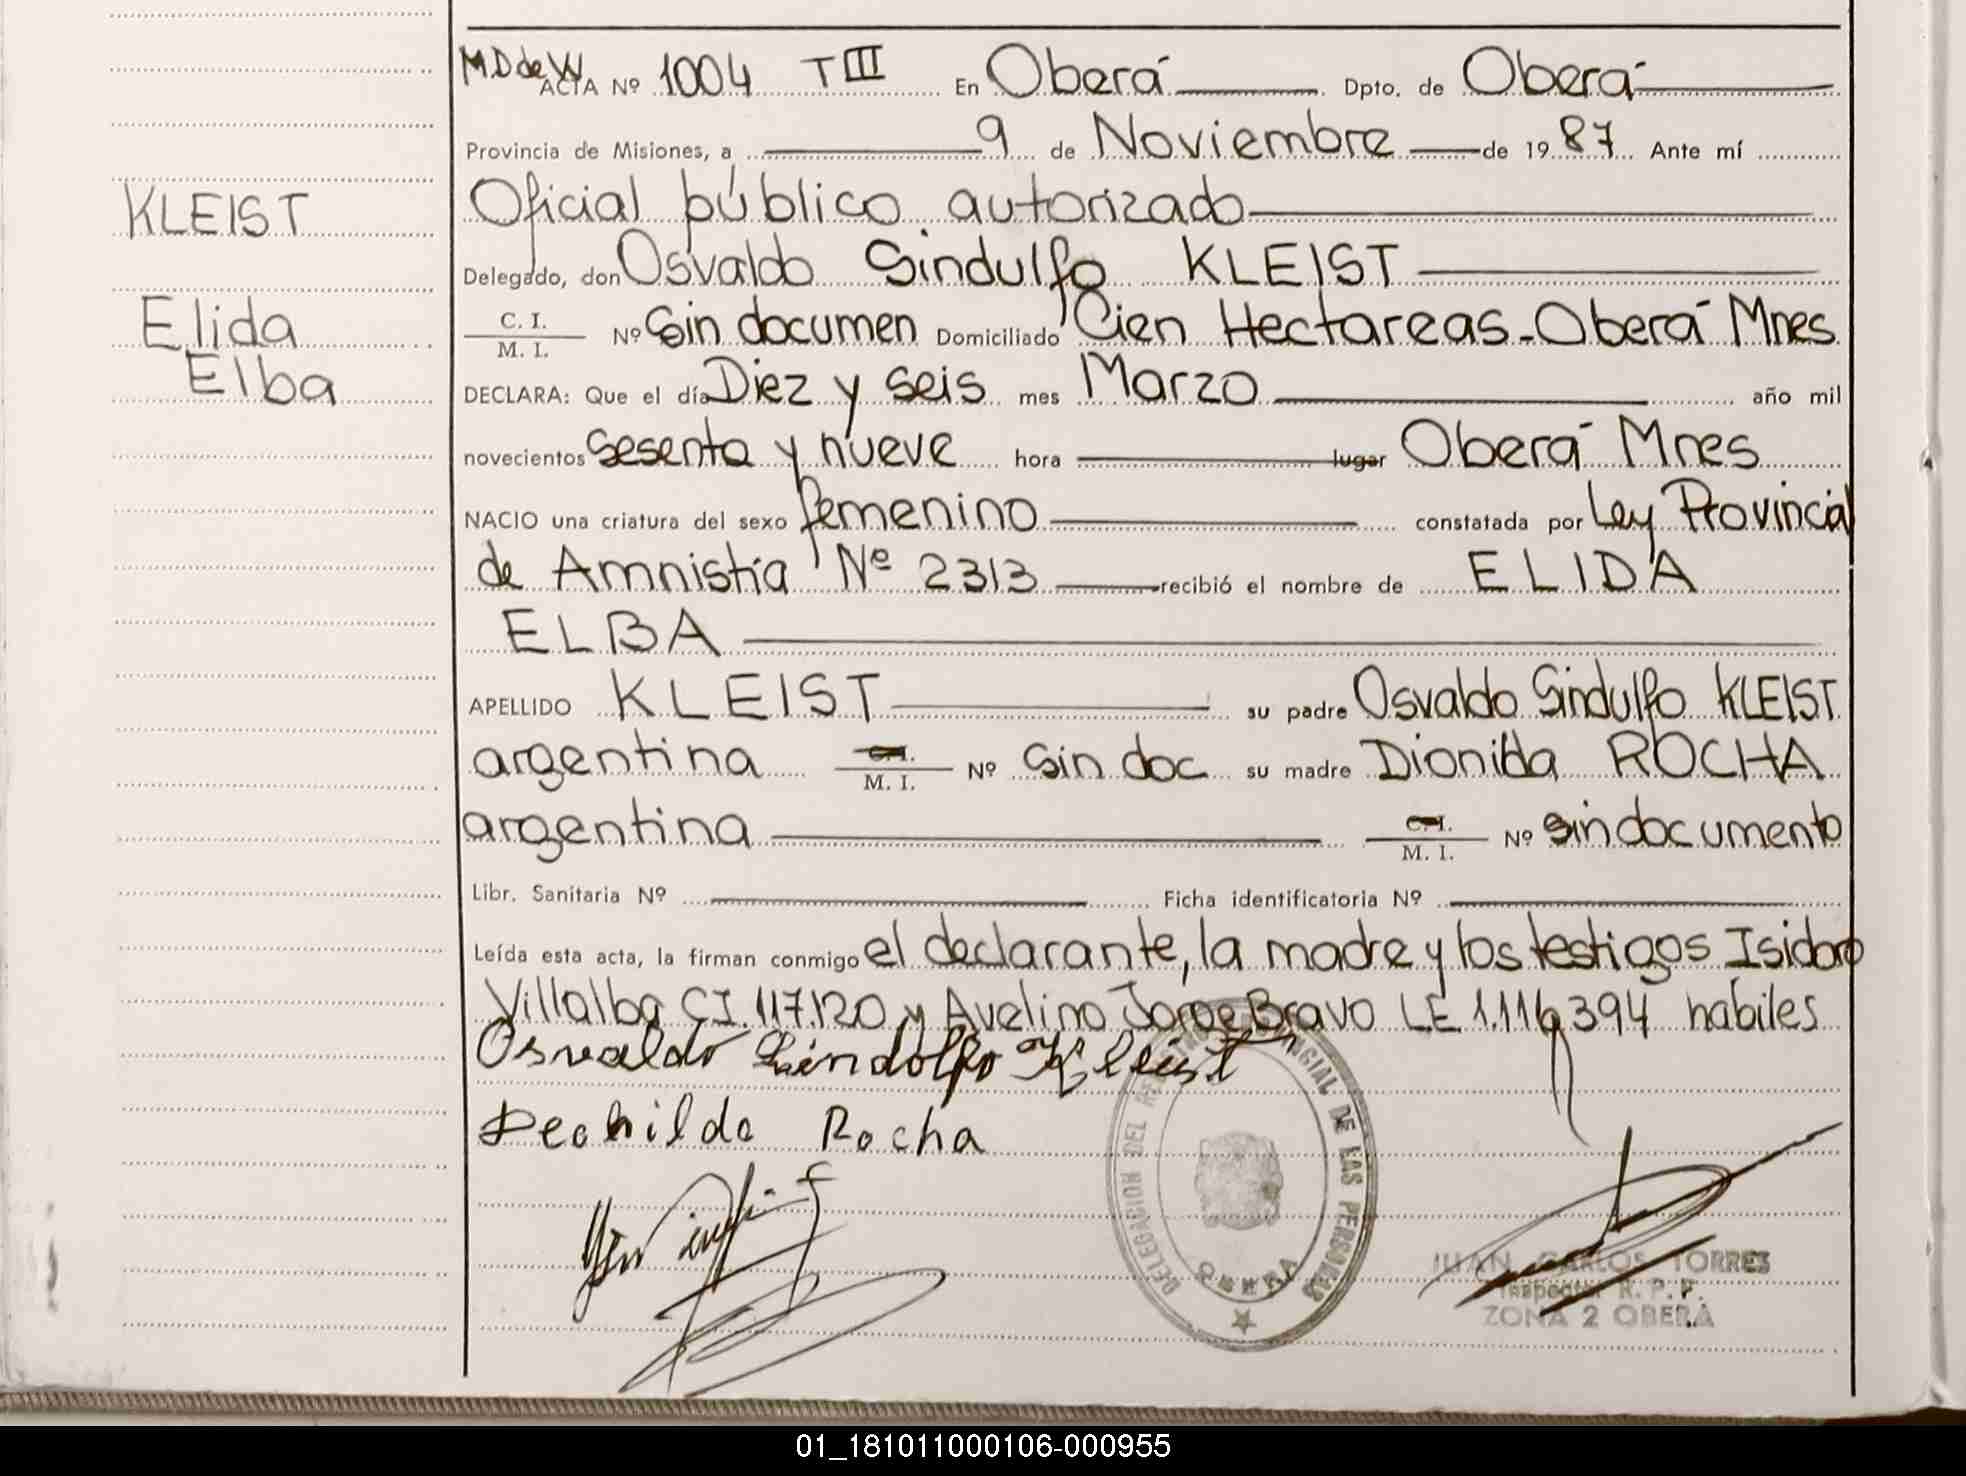 M.D de W ACTA Nº 1004 T III En Oberá Dpto. de Oberá
Provincia de Misiones, a 9 de Noviembre de 1987 Ante mí
Oficial público autorizado
KLEIST
Delegado, don Osvaldo Sindulfo KLEIST
C. I. / M. I. Nº Sin documen Domiciliado Cien Hectareas - Oberá Mnes
Elida
Elba
DECLARA: Que el día Diez y seis mes Marzo año mil
novecientos sesenta y nueve hora lugar Oberá Mnes
NACIO una criatura del sexo femenino constatada por Ley Provincial
de Amnistía Nº 2313 recibió el nombre de ELIDA
ELBA
APELLIDO KLEIST su padre Osvaldo Sindulfo KLEIST
argentina C.I. / M. I. Nº Sin doc su madre Dionilda ROCHA
argentina C.I. / M. I. Nº sin documento
Libr. Sanitaria Nº Ficha identificatoria Nº
Leída esta acta, la firman conmigo el declarante, la madre y los testigos Isidoro
Villalba CI. 117.120 y Avelino Jorge Bravo LE 1.116.394 habiles
Osvaldo Sindolfo Kleist
Deonilda Rocha
DELEGACION DEL REGISTRO PROVINCIAL DE LAS PERSONAS
OBERA
JUAN CARLOS TORRES
Inspector R. P. P.
ZONA 2 OBERÁ
01_181011000106-000955